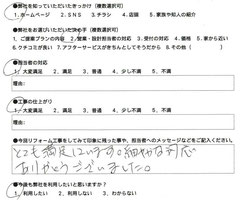 ●弊社を知っていただいたきっかけ（複数選択可）
1. ホームページ　2. SNS　3. チラシ　4. 店頭　5. 家族や知人の紹介
●弊社をお選びいただいた決め手（複数選択可）
1. ご提案プランの内容　2. 営業・設計担当者の対応　3. 受付の対応　4. 価格　5. 家から近い
6. クチコミが良い　7. アフターサービスがきちんとしてそうだから　8. その他（　　）
●担当者の対応
1. 大変満足　2. 満足　3. 普通　4. 少し不満　5. 不満
理由：
●工事の仕上がり
1. 大変満足　2. 満足　3. 普通　4. 少し不満　5. 不満
理由：
●今回リフォーム工事をしてみて印象に残った事や、担当者へのメッセージなどをご記入ください。
とても満足しています。細やかな対応
ありがとうございました。
●今後も弊社を利用したいと思いますか？
1. 利用したい　2. 利用しない　3. わからない